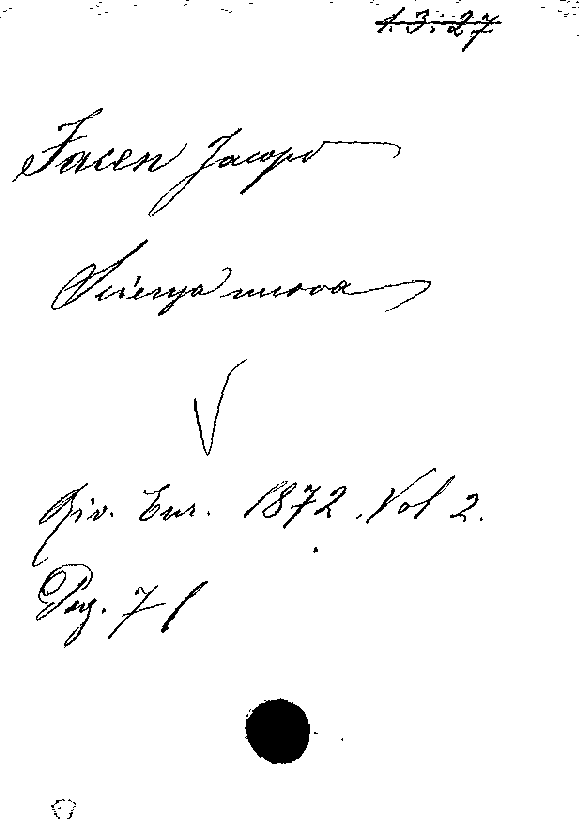 1.3.27
Facen Jacopo
Scienza nuova
V
Riv. Eur. 1872. Vol 2.
Pag. 71